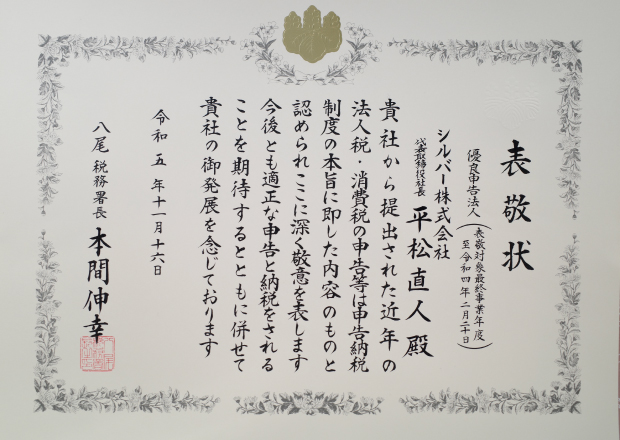 表敬状
優良申告法人（表敬対象最終事業年度
至令和四年二月二十日）
シルバー株式会社
代表取締役社長 平松直人殿
貴社から提出された近年の
法人税・消費税の申告等は申告納税
制度の本旨に即した内容のものと
認められここに深く敬意を表します
今後とも適正な申告と納税をされる
ことを期待するとともに併せて
貴社の御発展を念じております
令和五年十一月十六日
八尾税務署長 本間伸幸